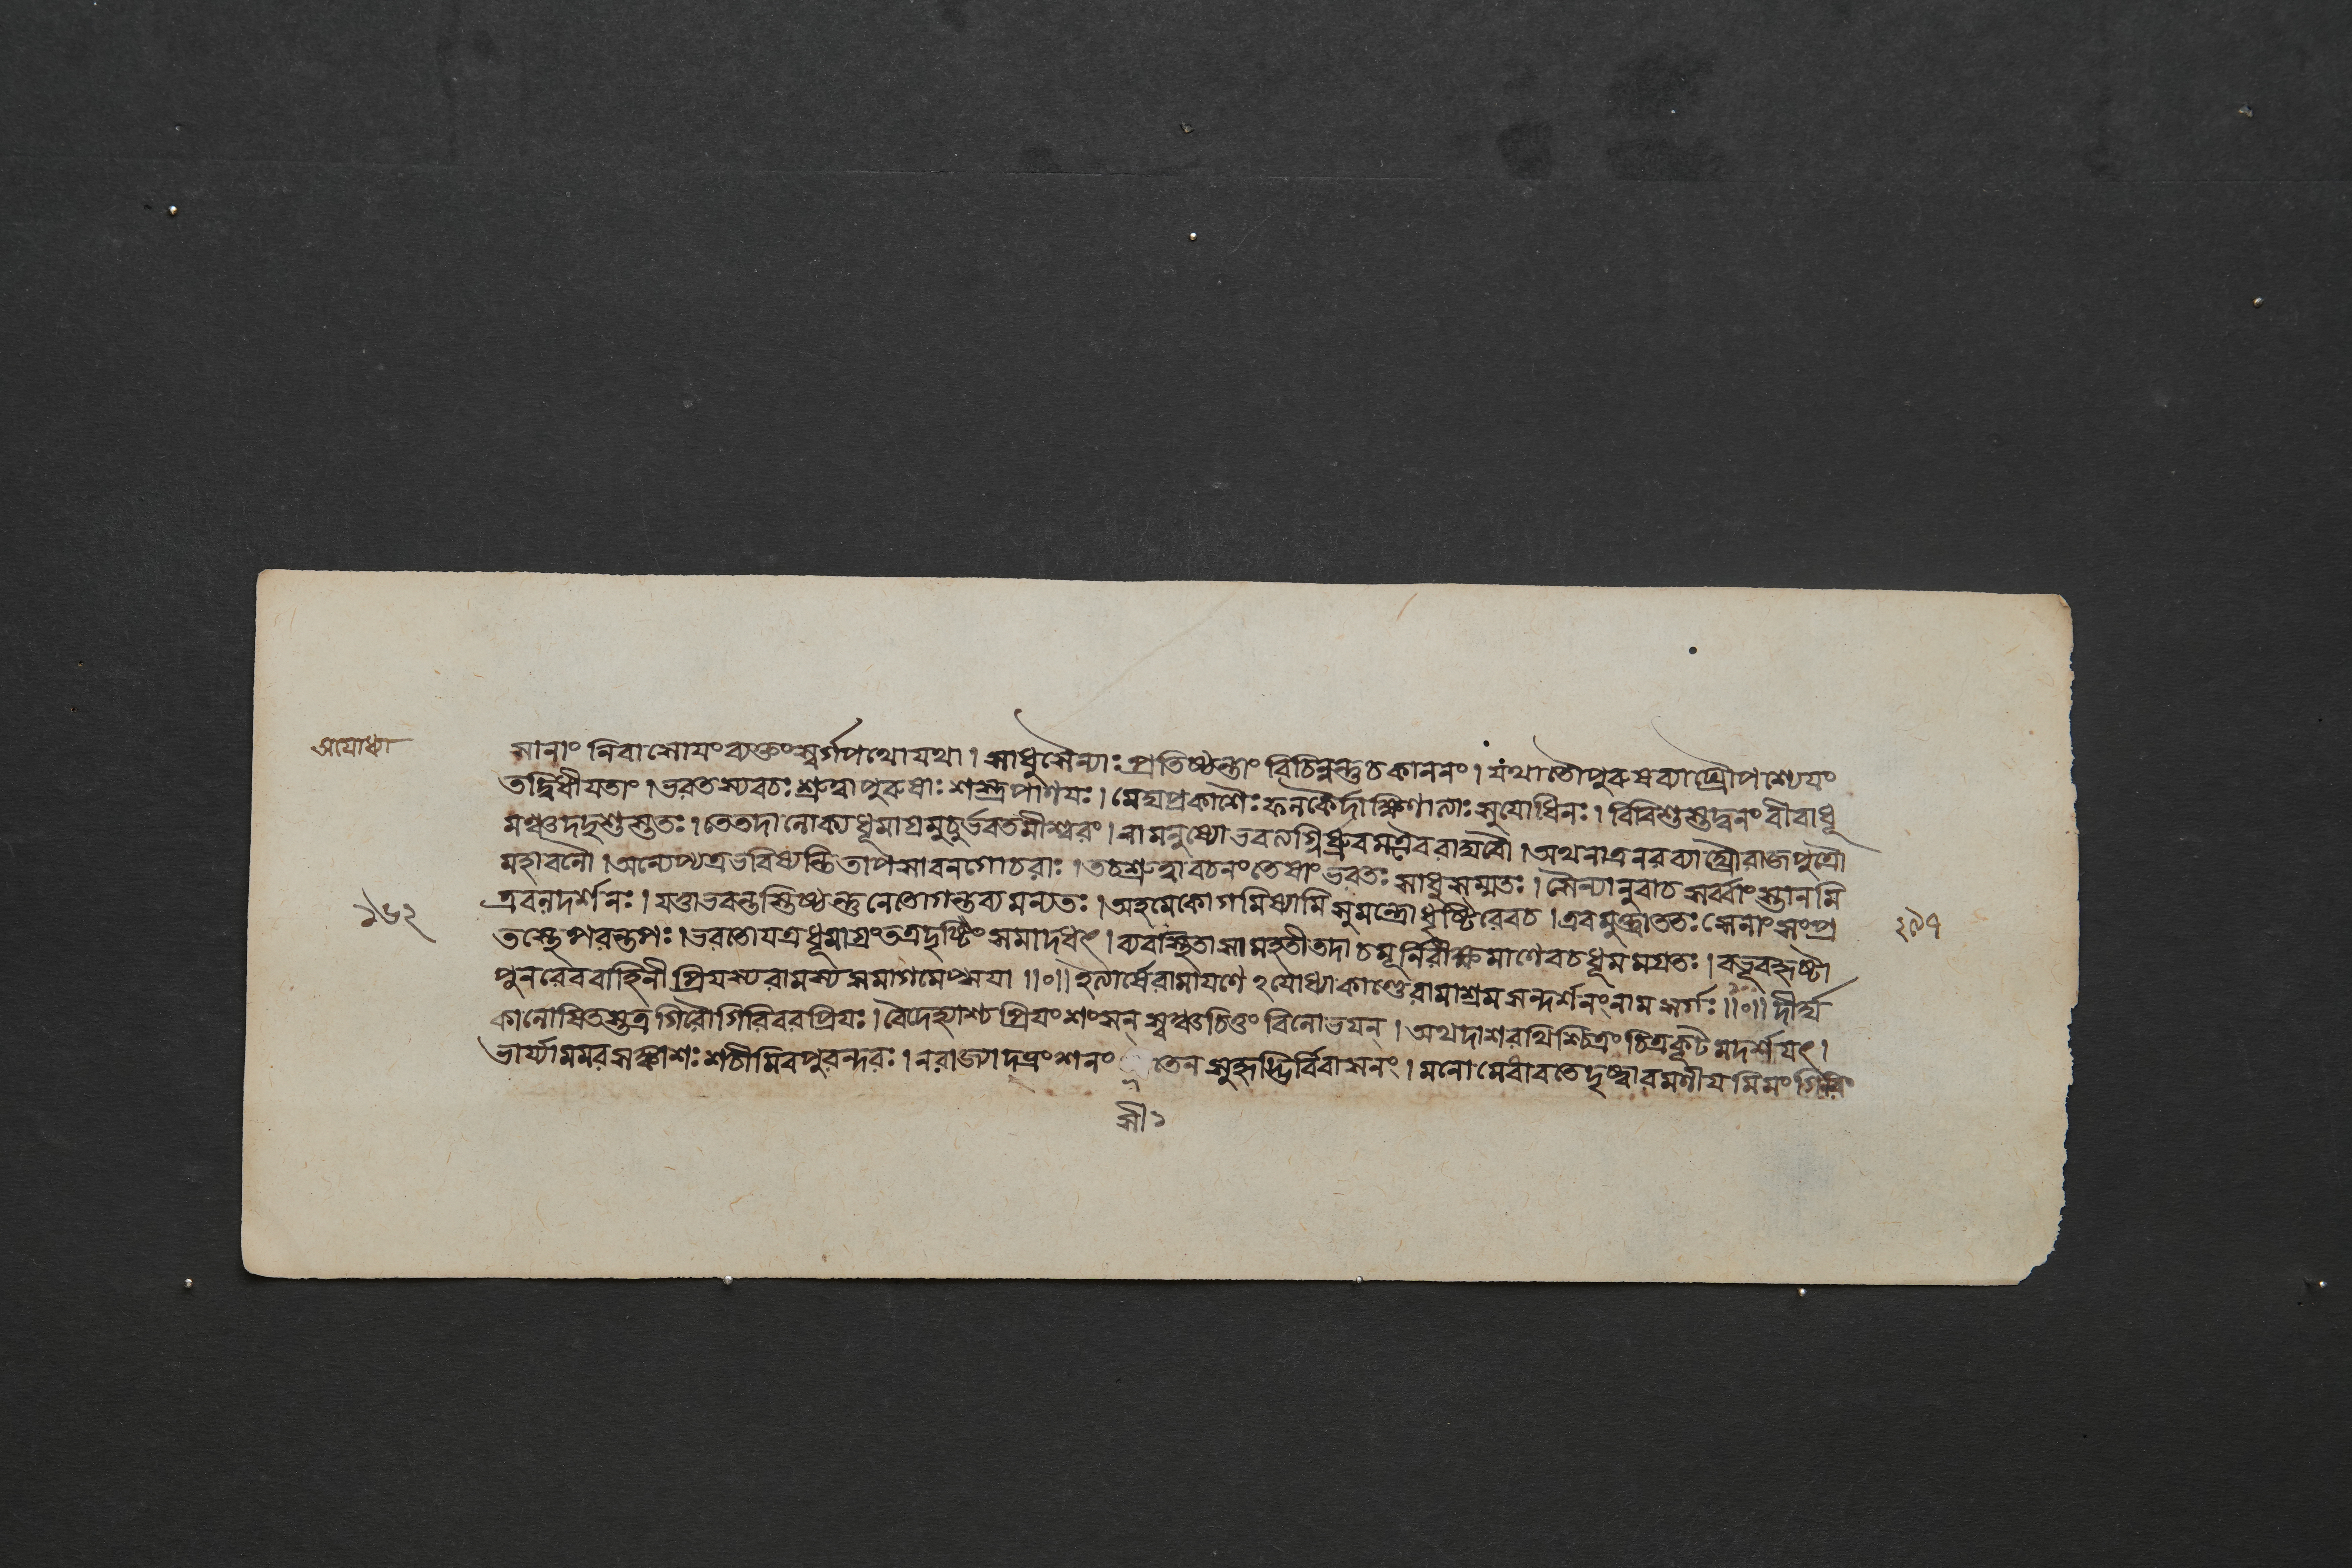 अयोध्या
সানাং নিবাসোযং ব্যক্তং স্বর্গপথোযথা। সাধুসৈন্যাঃ প্রতিষ্ঠন্তাং বিচিন্বন্তুচকাননং। যথাতৌপুরুষব্যাঘ্রৌপশ্যেযং
তদ্বিধীযতাং। ভরতস্যবচঃ শ্রুত্বাপুরুষাঃ শস্ত্রপাণযঃ। মেঘপ্রকাশৈঃ ফলকৈর্দাক্ষিণাত্যাঃ সুযোধিনঃ। বিবিশুস্তদ্বনং বীরাধূ
মঞ্চদদৃশুস্ততঃ। তেতদালোক্যধূমাগ্রমুচুর্ভরতমীশ্বরং। নামনুষ্যোভবত্যগ্নির্ধ্রুবমত্রৈবরাঘবৌ। অথনাত্রনরব্যাঘ্রৌরাজপুত্রৌ
মহাবলৌ। অন্যেপ্যত্রভবিষ্যন্তিতাপসাবনগোচরাঃ। তচশ্রুত্বাবচনংতেষাংভরতঃ সাধুসম্মতঃ। সৈন্যানুবাচসর্ব্বাংস্তানমি
ত্রবলদর্শনঃ। যত্তাভবন্তস্তিষ্ঠন্তুনেতোগন্তব্যমন্যতঃ। অহমেকোগমিষ্যামিসুমন্ত্রোধৃষ্টিরেবচ। এবমুক্ত্বাততঃ সেনাংসংপ্র
১৬২
২৯৭
তস্থেপরন্তপঃ। ভরতোযত্রধূমাগ্রংতত্রদৃষ্টিংসমাদধৎ। ব্যবস্থিতাসামহতীতদাচমূর্নিরীক্ষমাণেবচধূমমগ্রতঃ। বভূবহৃষ্টা
পুনরেববাহিনী প্রিযস্যরামস্যসমাগমেপ্সযা॥০॥ ইত্যার্ষেরামাযণে ঽযোধ্যাকাণ্ডেরামাশ্রমসন্দর্শনংনামসর্গঃ॥০॥ দীর্ঘ
কালোষিতস্তত্রগিরৌগিরিবরপ্রিযঃ। বৈদেহ্যাশ্চপ্রিযংশংসন্ স্বঞ্চচিত্তং বিলোভযন্। অথদাশরথিশ্চিত্রং চিত্রকূটমদর্শযৎ।
ভার্য্যামমরসঙ্কাশঃ শচীমিবপুরন্দরঃ। নরাজ্যাদভ্রংশনং তেনসুহৃদ্ভির্বিবাসনং। মনোমেবাবতেদৃষ্ট্বারমণীযমিমংগিরিং
সী১